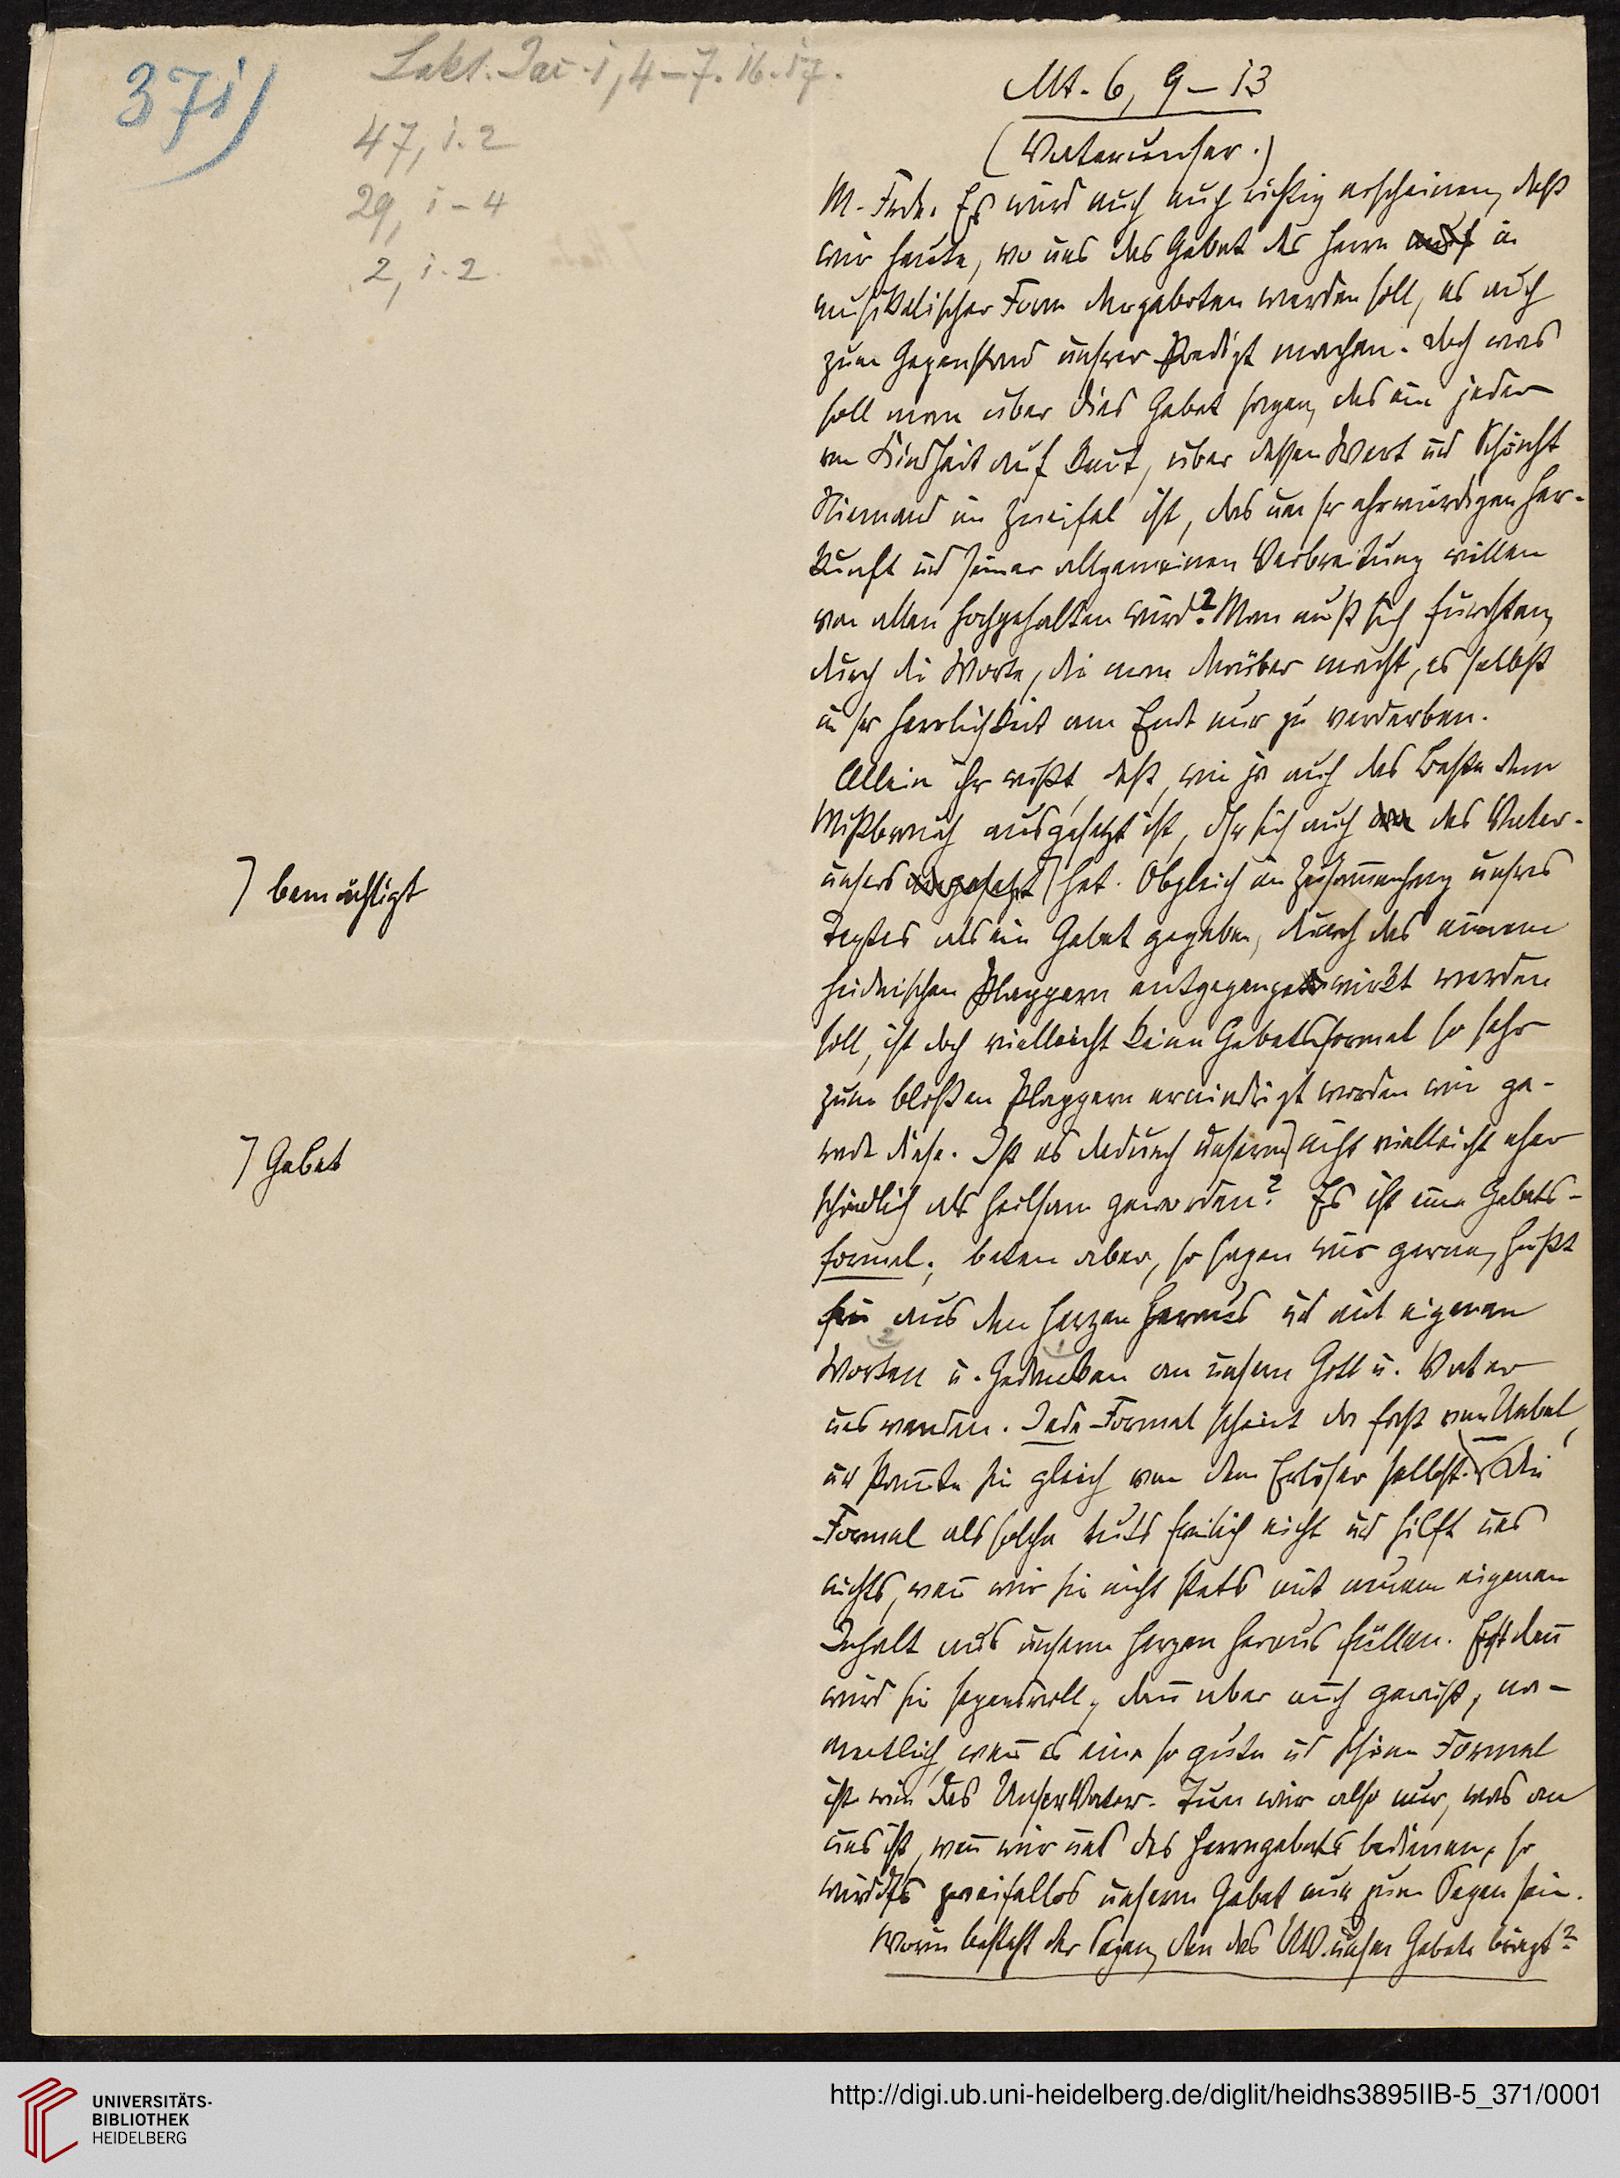 371)
Lekt. Jac. 1, 4–7. 16. 17.
47, 1. 2
29, 1–4
2, 1. 2.
Mt. 6, 9–13
(Vaterunser.)
M. Frde. Es wird euch auch richtig erscheinen, daß
wir heute, wo uns das Gebet des Herrn auch in
musikalischer Form dargeboten werden soll, es auch
zum Gegenstand unsrer Predigt machen. Doch was
soll man über dies Gebet sagen, das ein jeder
von Kindheit auf kennt, über dessen Wert und Schönht
Niemand im Zweifel ist, das um sr ehrwürdigen Her-
kunft und seiner allgemeinen Verbreitung willen
von allen hochgehalten wird? Man muß sich fürchten,
durch die Worte, die man darüber macht, es selbst
in sr Herrlichkeit am Ende nur zu verderben.
Allein ihr wißt, daß, wie ja auch das Beste dem
Mißbrauch ausgesetzt ist, dsr sich auch des Vater-
unsers angesetzt ⁊ hat. Obgleich im Zusammenhang unsres
⁊ bemächtigt
Textes als ein Gebet gegeben, durch das einem
heidnischen Plappern entgegengewirkt werden
soll, ist doch vielleicht keine Gebetsformel so sehr
zum bloßen Plappern erniedrigt worden wie ge-
rade diese. Ist es dadurch unserm ⁊ nicht vielleicht eher
⁊ Gebet
schädlich als heilsam geworden? Es ist eine Gebets-
formel; beten aber, so sagen wir gerne, heißt
frei aus dem Herzen heraus und mit eigenen
2 1
Worten u. Gedanken an unsern Gott u. Vater
uns wenden. Jede Formel scheint da fast vom Uebel,
und stammte sie gleich von dem Erlöser selbst. Die
Formel als solche tut's freilich nicht und hilft uns
nichts, wenn wir sie nicht stets mit neuem eigenen
Inhalt aus unserm Herzen heraus füllen. Erst dann
wird sie segensvoll, dann aber auch gewiß, na-
mentlich, wenn es eine so gute und schöne Formel
ist wie das Unser Vater. Tun wir also nur, was an
uns ist, wenn wir uns des Herrngebets bedienen, so
wird's zweifellos unserm Gebet nur zum Segen sein.
Worin besteht der Segen, den das UV. unserm Gebete bringt?
UNIVERSITÄTS-
BIBLIOTHEK
HEIDELBERG
http://digi.ub.uni-heidelberg.de/diglit/heidhs3895IIB-5_371/0001